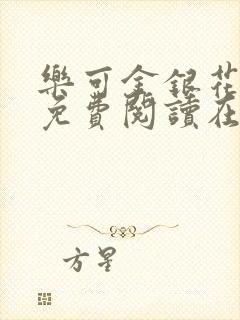 樂可金銀花
免費閱讀在
方星